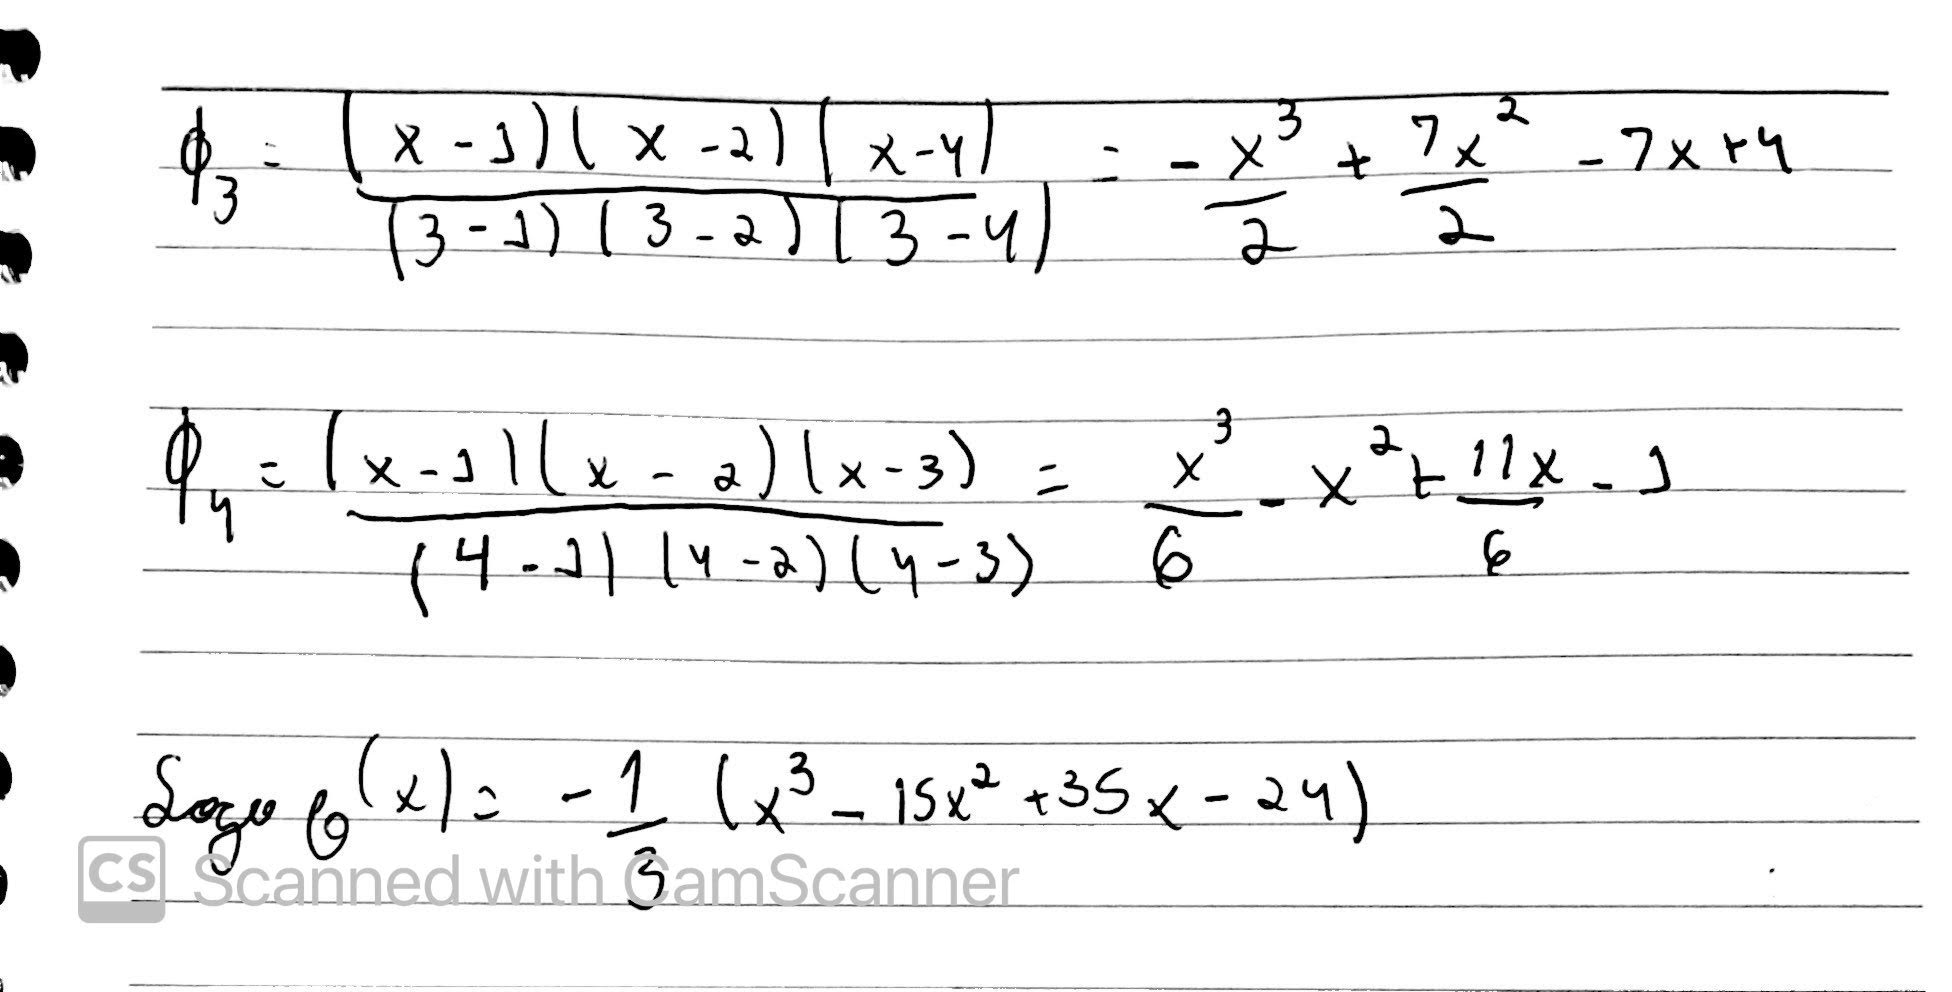 ϕ₃ = (x-1)(x-2)(x-4) / (3-1)(3-2)(3-4) = -x³/2 + 7x²/2 - 7x+4
ϕ₄ = (x-1)(x-2)(x-3) / (4-1)(4-2)(4-3) = x³/6 - x² + 11x/6 - 1
Logo φ(x) = -1/3 (x³ - 15x² + 35x - 24)
CS Scanned with CamScanner